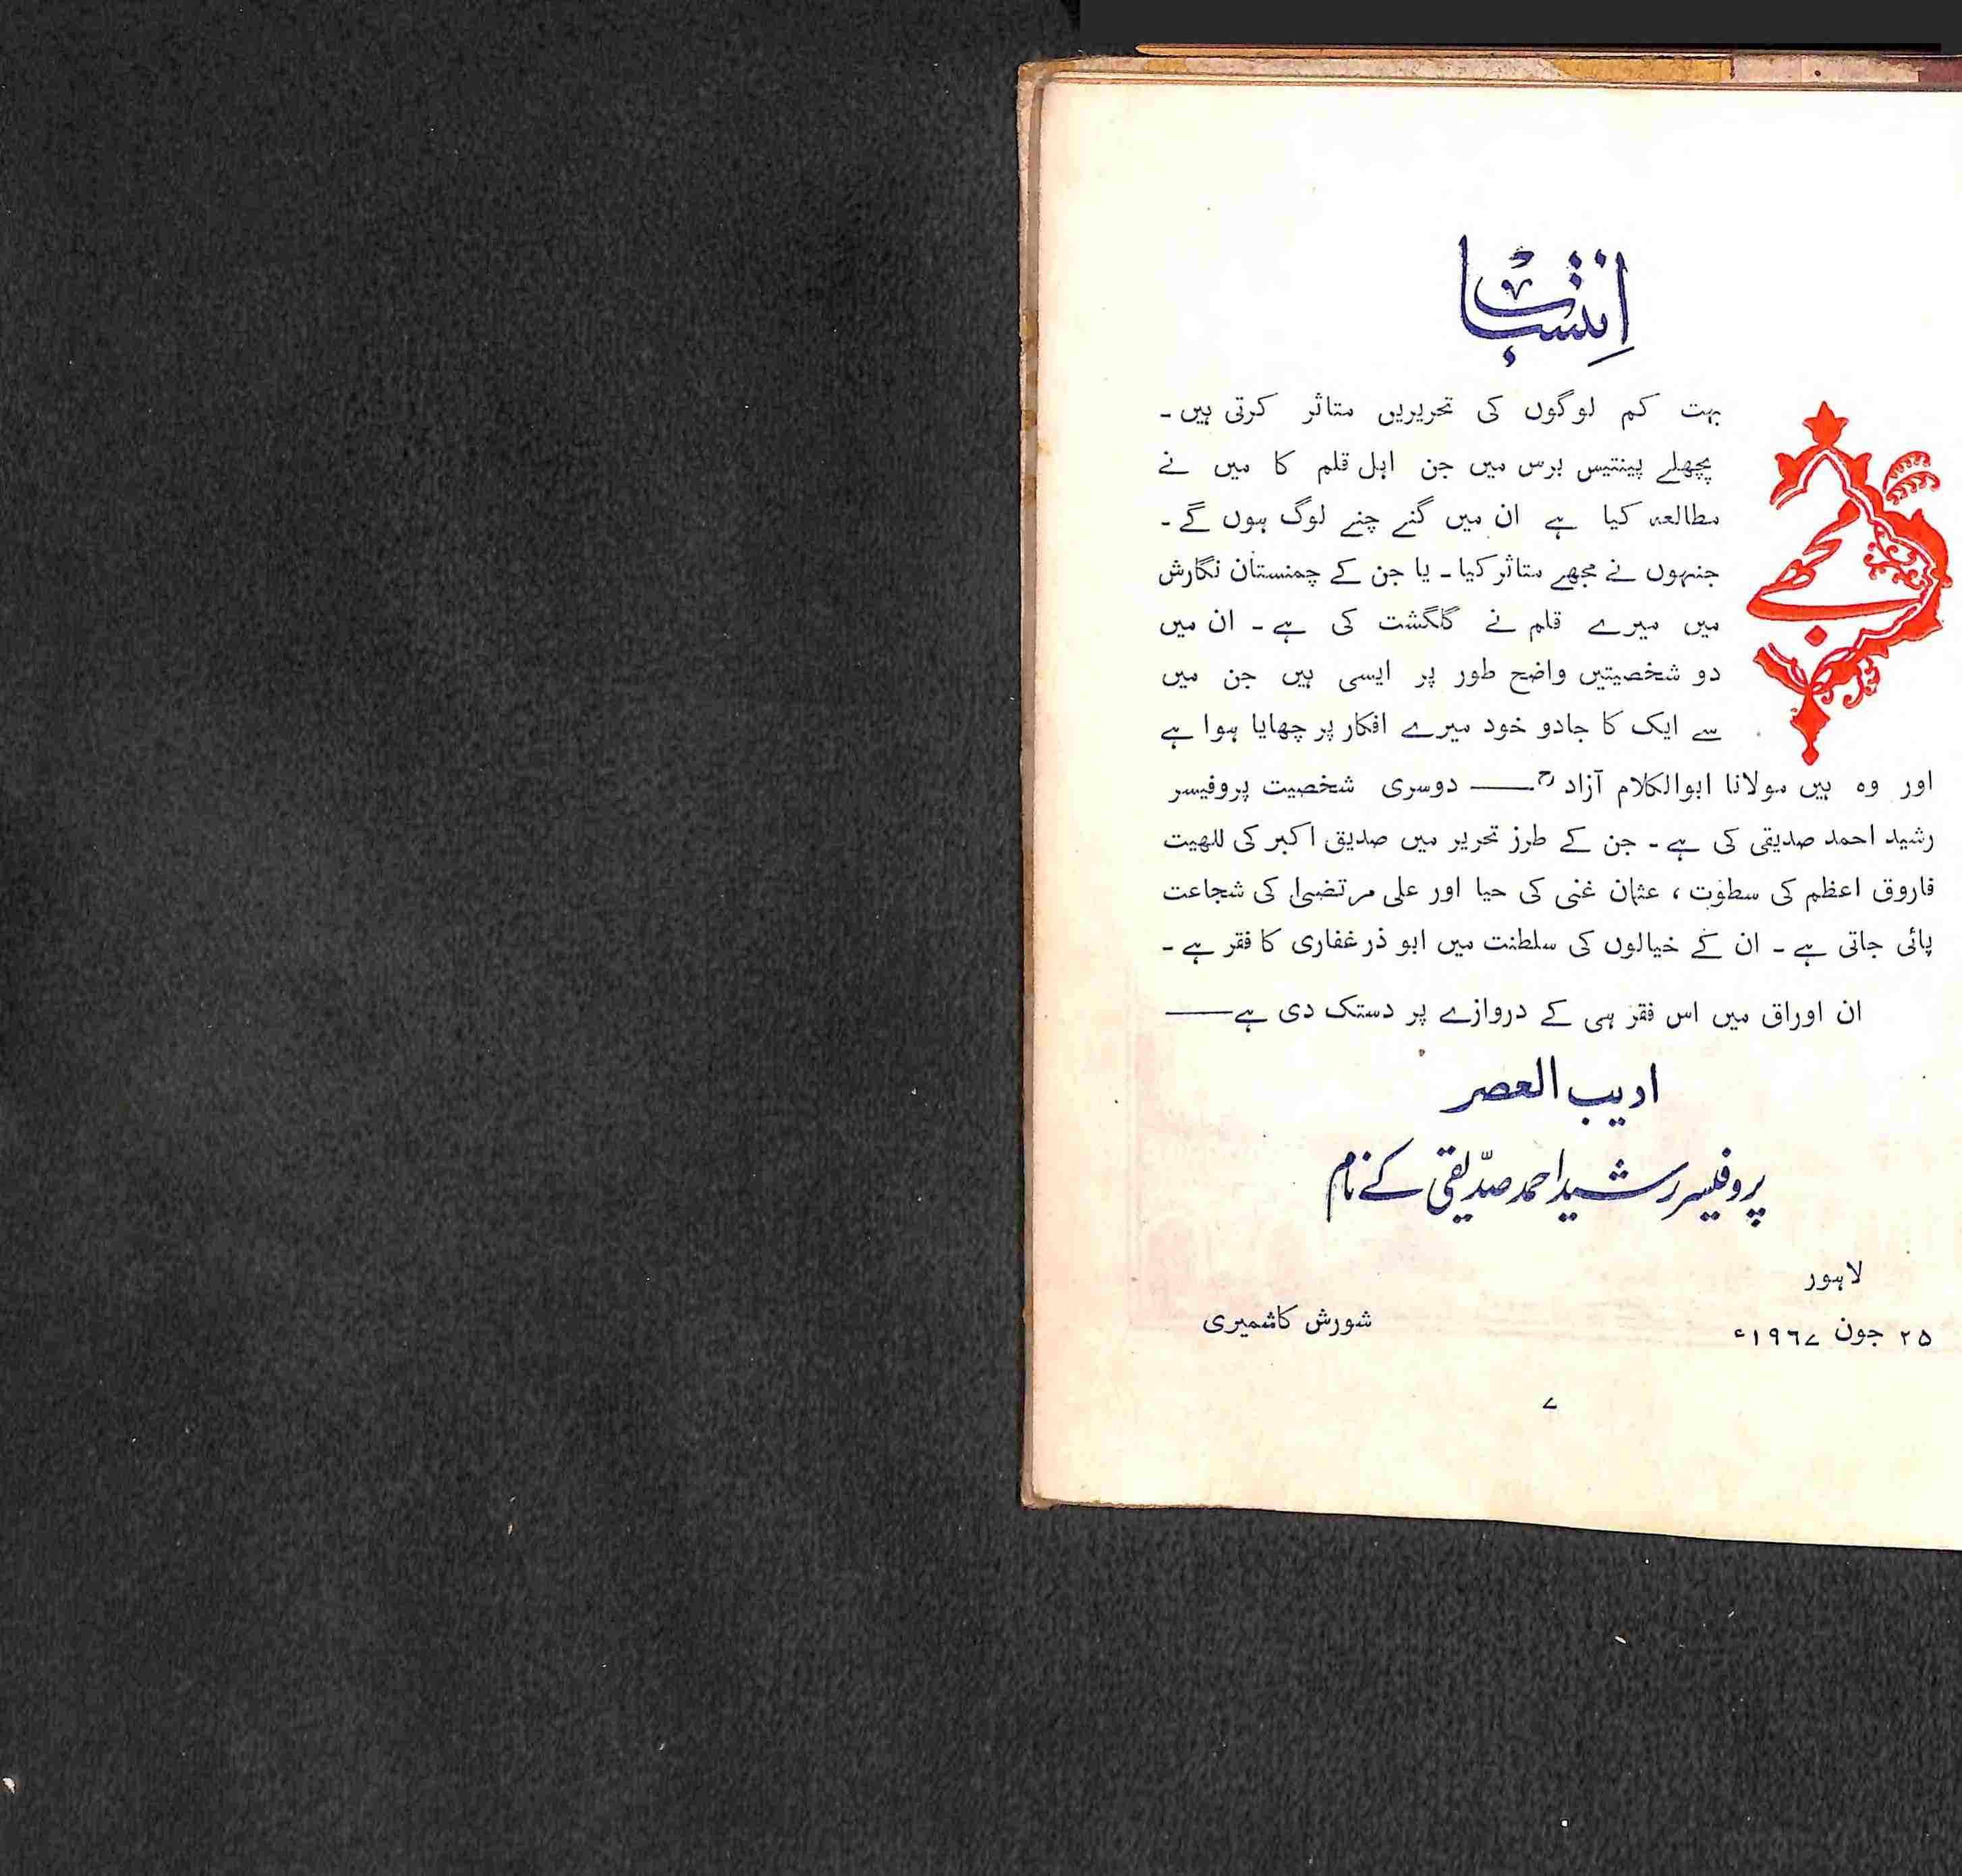 انتساب
مجھے
بہت کم لوگوں کی تحریریں متاثر کرتی ہیں۔
پچھلے پینتیس برس میں جن اہل قلم کا میں نے
مطالعہ کیا ہے ان میں گنے چنے لوگ ہوں گے۔
جنہوں نے مجھے متاثر کیا۔ یا جن کے چمنستان نگارش
میں میرے قلم نے گلگشت کی ہے۔ ان میں
دو شخصیتیں واضح طور پر ایسی ہیں جن میں
سے ایک کا جادو خود میرے افکار پر چھایا ہوا ہے
اور وہ ہیں مولانا ابوالکلام آزاد رح —— دوسری شخصیت پروفیسر
رشید احمد صدیقی کی ہے۔ جن کے طرز تحریر میں صدیق اکبر کی للھیت
فاروق اعظم کی سطوت ، عثمان غنی کی حیا اور علی مرتضیٰ کی شجاعت
پائی جاتی ہے۔ ان کے خیالوں کی سلطنت میں ابو ذر غفاری کا فقر ہے۔
ان اوراق میں اس فقر ہی کے دروازے پر دستک دی ہے——
ادیب العصر
پروفیسر رشید احمد صدّیقی کے نام
لاہور
۲۵ جون ۱۹۶۷ء
شورش کاشمیری
۷